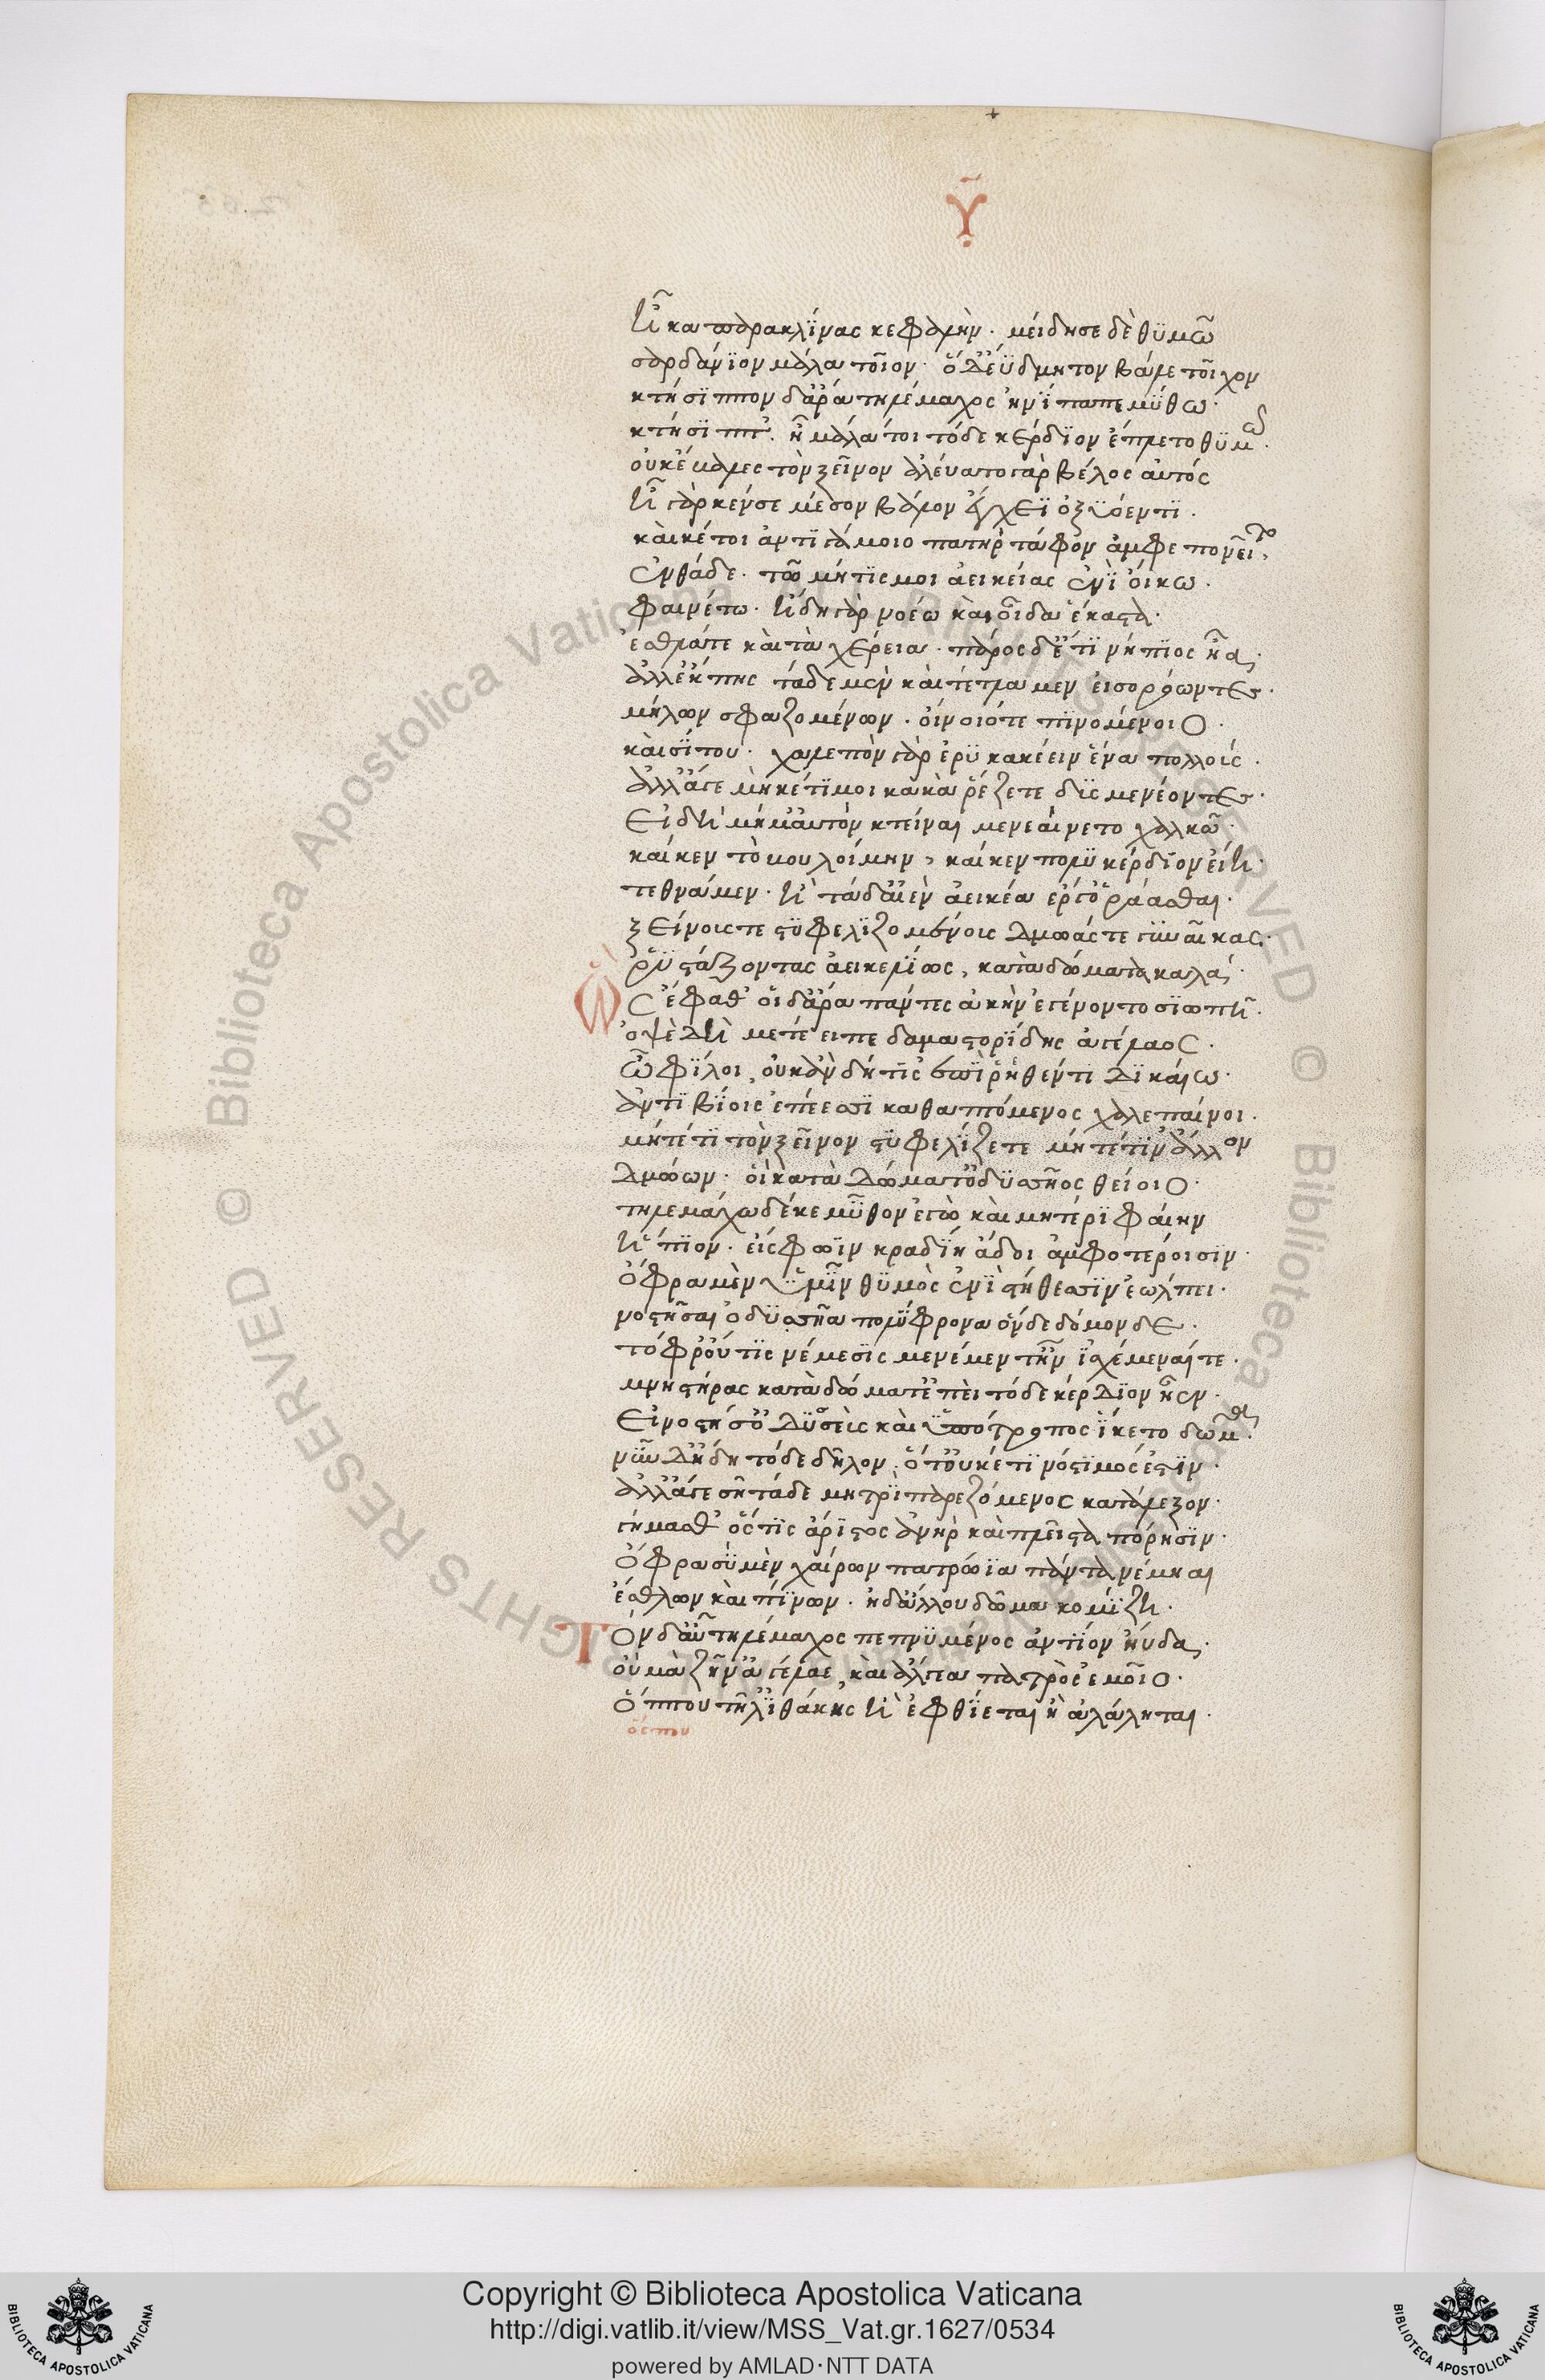 Υ
ἦκα παρακλίνας κεφαλήν· μείδησε δὲ θυμῶ
σαρδάνιον μάλα τοῖον· ὅ δ' εὔδμητον βάλε τοῖχον
κτήσιππον δ' ἄρα τηλέμαχος ἠνίπαπε μύθω·
κτήσιππ'. ἦ μάλά τοι τόδε κέρδιον ἔπλετο θυμῶ·
οὐκ ἔβαλες τὸν ξεῖνον ἀλεύατο γὰρ βέλος αὐτός
ἦ γάρ κέν σε μέσον βάλον ἔγχεϊ ὀξυόεντι·
καί κέ τοι ἀντὶ γάμοιο πατὴρ τάφον ἀμφεπονεῖτο
ἐνθάδε· τῶ μή τίς μοι ἀεικείας ἐνὶ οἴκω·
φαινέτω· ἤδη γὰρ νοέω καὶ οἶδα ἕκαστα·
ἐσθλά τε καὶ τὰ χέρεια· πάρος δ' ἔτι νήπιος ἦα·
ἀλλ' ἔκπης τάδε μὲν καὶ τέτλαμεν εἰσορόωντες·
μήλων σφαζομένων· οἴνοιό τε πινομένοιο·
καὶ σίτου· χαλεπὸν γὰρ ἐρυκακέειν ἕνα πολλούς·
ἀλλ' ἄγε μηκέτι μοι κακὰ ῥέζετε δυσμενέοντες·
εἰ δ' ἤδη μ' αὐτὸν κτεῖναι μενεαίνετο χαλκῶ·
καί κεν τὸ βουλοίμην, καί κεν πολὺ κέρδιον εἴη·
τεθνάμεν· ἢ τάδ' αἰὲν ἀεικέα ἔργ' ὁράασθαι·
ξείνους τε στυφελιζομένους δμωάς τε γυναῖκας·
ῥυστάζοντας ἀεικελίως, κατὰ δώματα καλά·
ὣς ἔφαθ' οἱ δ' ἄρα πάντες ἀκὴν ἐγένοντο σιωπῆ·
ὀψὲ δὲ δὴ μετέειπε δαμαστορίδης ἀγέλαος·
ὦ φίλοι, οὐκ ἂν δή τις ἐπὶ ῥηθέντι δικαίω·
ἀντιβίοις ἐπέεσσι καθαπτόμενος χαλεπαίνοι·
μήτέ τι τὸν ξεῖνον στυφελίζετε μήτέ τιν' ἄλλον
δμώων· οἳ κατὰ δώματ' ὀδυσσῆος θείοιο·
τηλεμάχω δέ κε μῦθον ἐγὼ καὶ μητέρι φαίην
ἤπιον· εἴ σφωϊν κραδίη ἅδοι ἀμφοτέροισιν·
ὄφρα μὲν ὑμῖν θυμὸς ἐνὶ στήθεσσιν ἐώλπει·
νοστῆσαι ὀδυσσῆα πολύφρονα ὅνδε δόμονδε·
τόφρ' οὔτις νέμεσις μενέμεν τ' ἦν ἰσχέμεναί τε·
μνηστῆρας κατὰ δώματ' ἐπεὶ τόδε κέρδιον ἦεν·
εἰ νόστησ' ὀδυσεὺς καὶ ὑπότροπος ἵκετο δῶμα·
νῦν δ' ἤδη τόδε δῆλον· ὅτ' οὐκέτι νόστιμός ἐστιν·
ἀλλ' ἄγε σῆ τάδε μητρὶ παρεζόμενος κατάλεξον·
γήμασθ' ὅστις ἄριστος ἀνὴρ καὶ πλεῖστα πόρησιν·
ὄφρα σὺ μὲν χαίρων πατρώϊα πάντα νέμηαι
ἔσθλων καὶ πίνων· ἡ δ' ἄλλου δῶμα κομίζη·
Τὸν δ' αὖ τηλέμαχος πεπνυμένος ἀντίον ηὔδα·
οὐ μὰ ζῆν' ἀγέλαε, καὶ ἄλγεα πατρὸς ἐμοῖο·
ὅππου τῆλ' ἰθάκης ἢ ἔφθιεται ἢ ἀλάληται·
ὅς που
Copyright © Biblioteca Apostolica Vaticana
http://digi.vatlib.it/view/MSS_Vat.gr.1627/0534
powered by AMLAD·NTT DATA